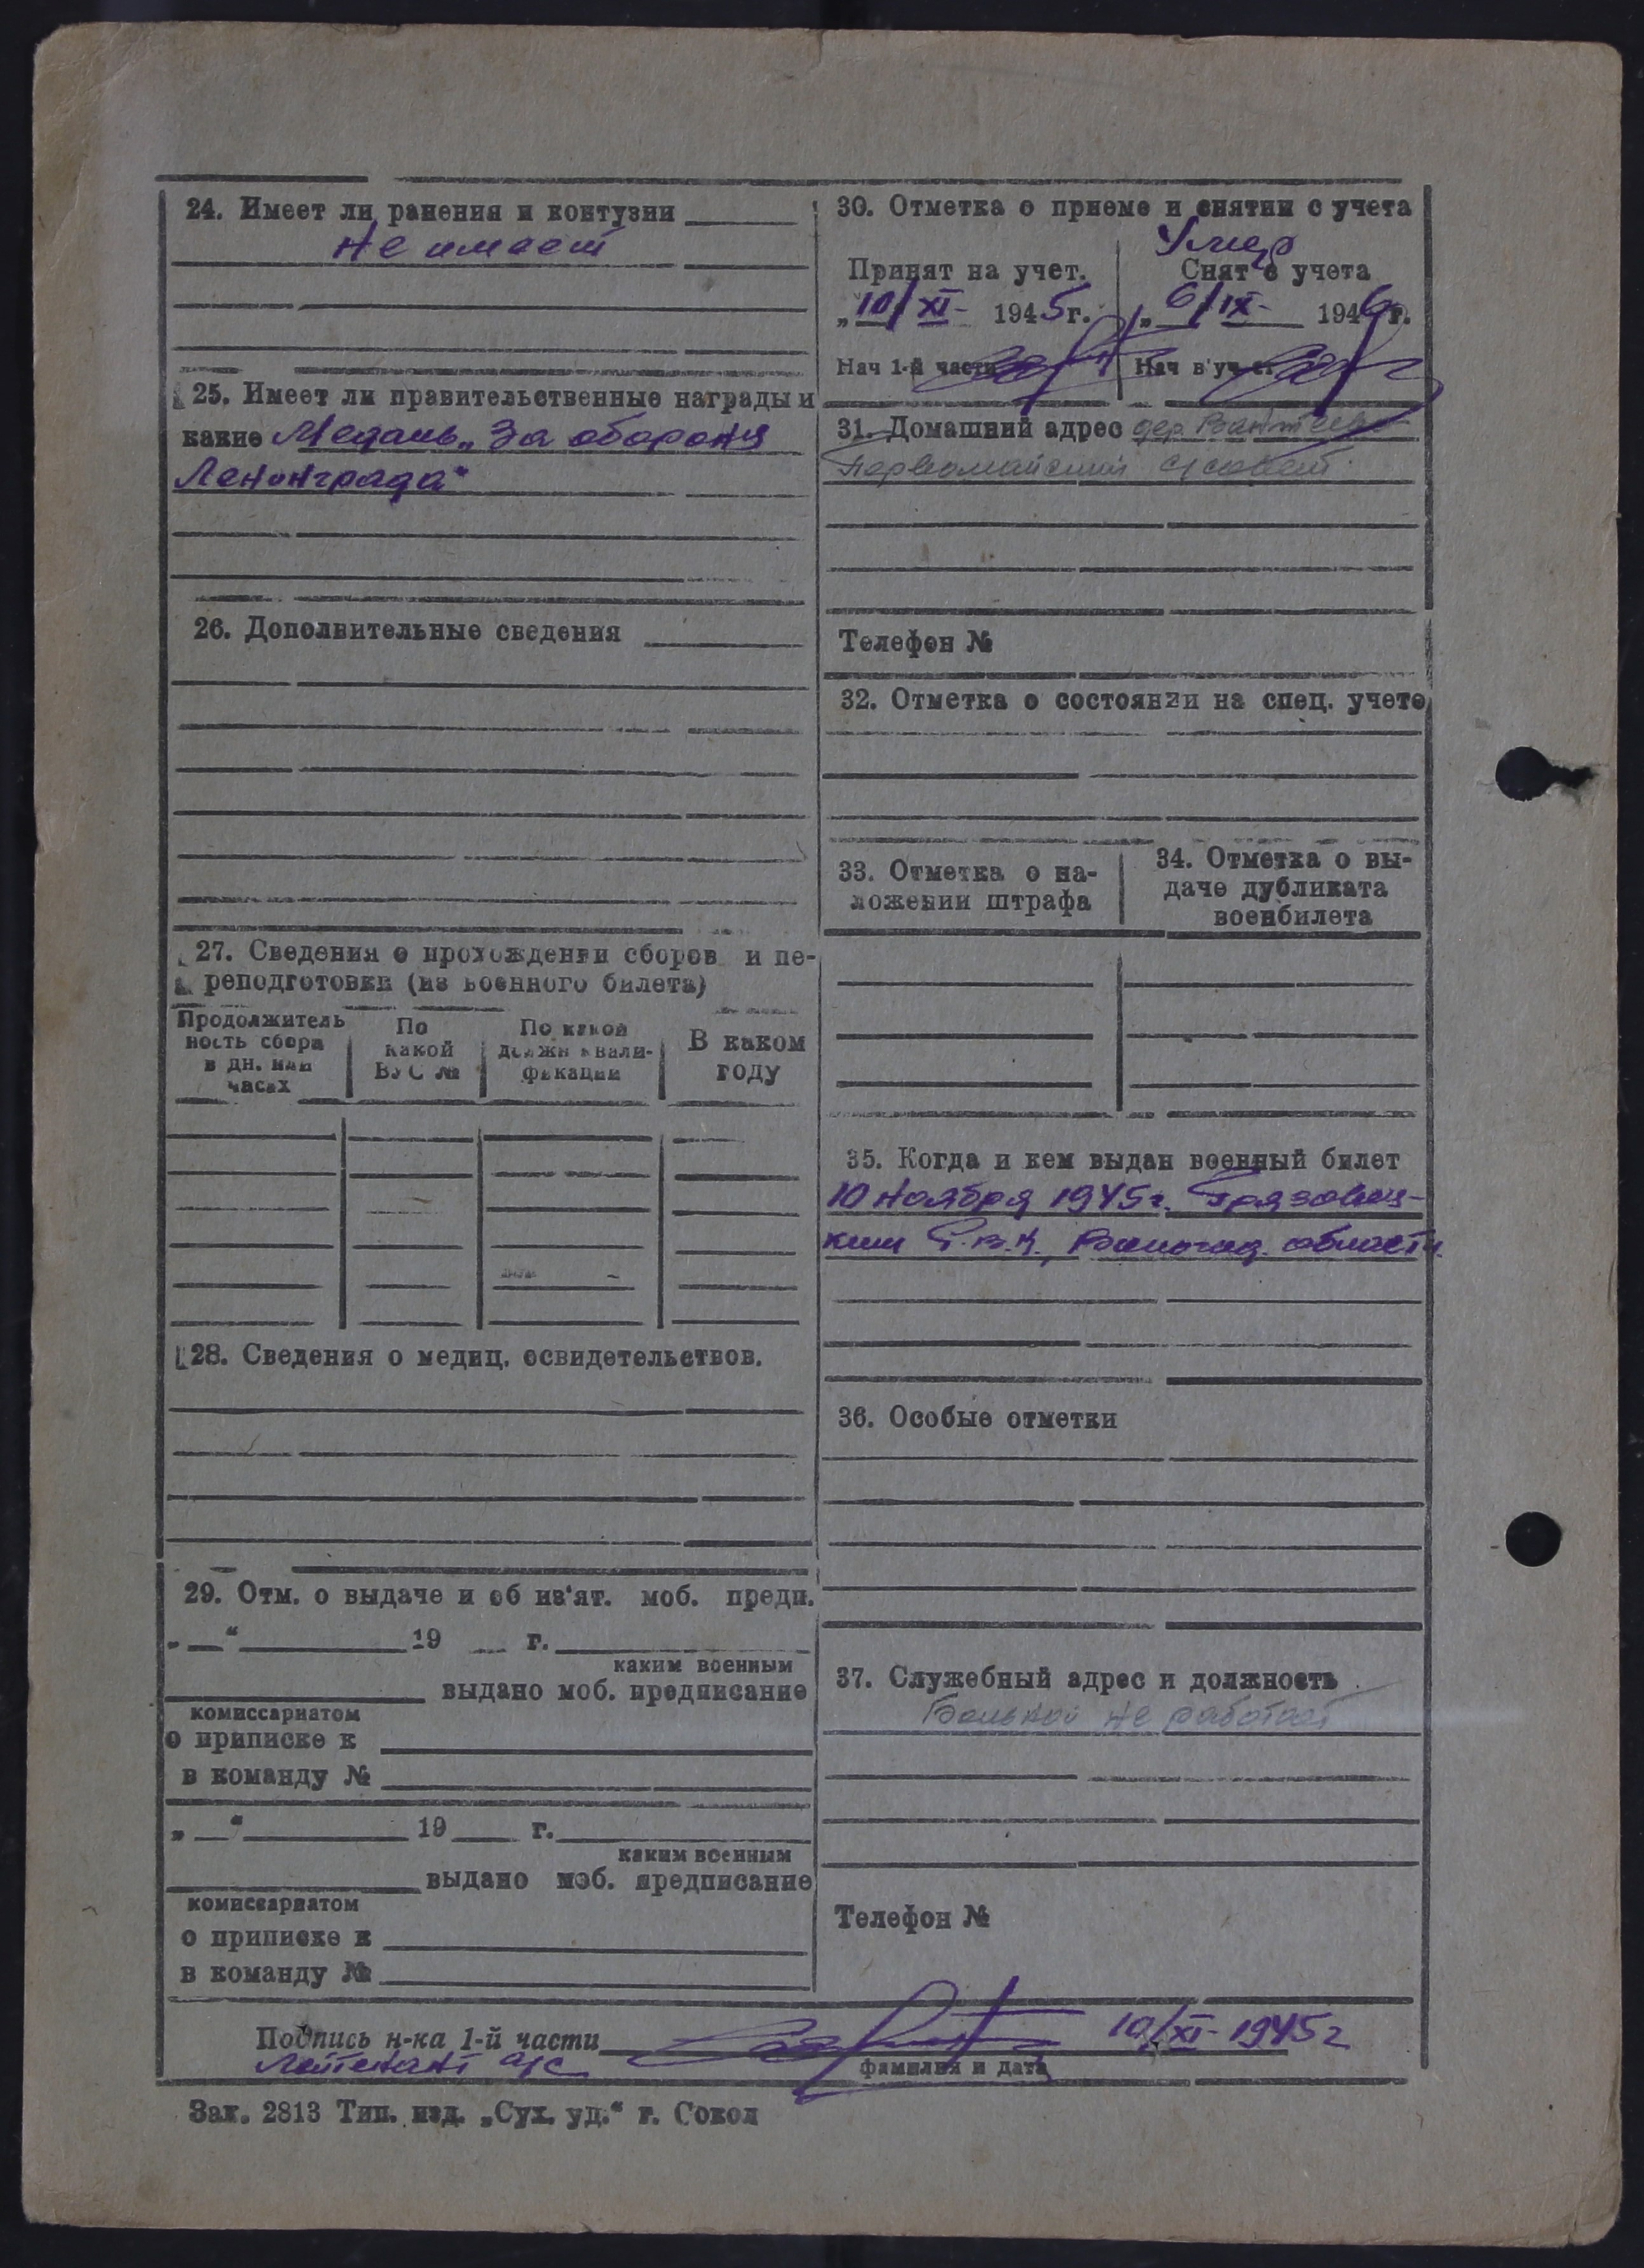 24. Имеет ли ранения и контузии
Не имеет
25. Имеет ли правительственные награды и
какие Медаль „За оборону
Ленинграда“
26. Дополнительные сведения
27. Сведения о прохождении сборов и пе-
реподготовки (из военного билета)
Продолжитель
ность сбора
в дн. или
часах
По
какой
ВУС №
По какой
должн квали-
фикации
В каком
году
28. Сведения о медиц. освидетельствов.
29. Отм. о выдаче и об из'ят. моб. предп.
„ “ 19 г.
каким военным
выдано моб. предписание
комиссариатом
о приписке к
в команду №
„ “ 19 г.
каким военным
выдано моб. предписание
комиссариатом
о приписке к
в команду №
30. Отметка о приеме и снятии с учета
Умер
Принят на учет.
„10/XI- 1945г.
Нач 1-й части
Снят с учета
„6/IX- 1946г.
Нач в'уч-ст
31. Домашний адрес дер.
Первомайский с/совет
Телефон №
32. Отметка о состоянии на спец. учете
33. Отметка о на-
ложении штрафа
34. Отметка о вы-
даче дубликата
военбилета
35. Когда и кем выдан военный билет
10 ноября 1945г. Грязовец-
ким Р.В.К., Вологод. области.
36. Особые отметки
37. Служебный адрес и должность
Больной не работает
Телефон №
Подпись н-ка 1-й части 10/XI-1945г
Лейтенант а/с
фамилия и дата
Зак. 2813 Тип. изд. „Сух. уд.“ г. Сокол